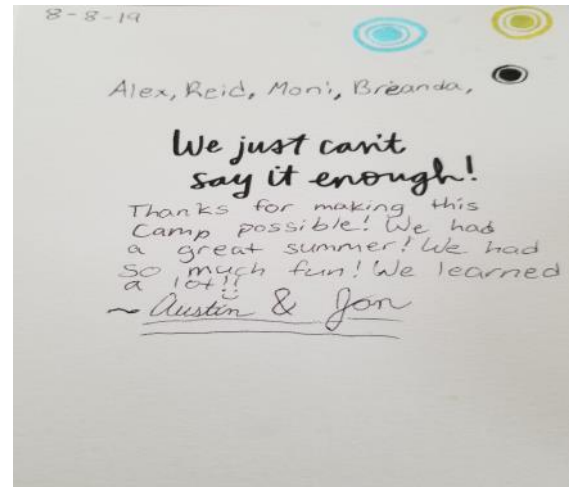 8-8-19
Alex, Reid, Moni, Breanda,
We just can't
say it enough!
Thanks for making this
Camp possible! We had
a great summer! We had
so much fun! We learned
a lot!!
~ Austin & Jon